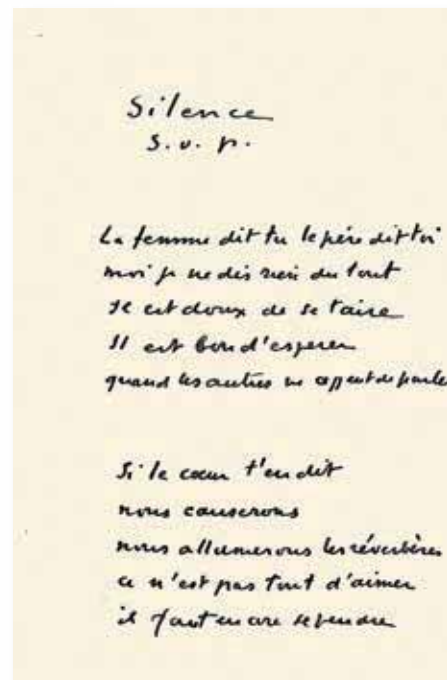 Silence
s. v. p.
La femme dit tu le père dit toi
moi je ne dis rien du tout
Il est doux de se taire
Il est bon d'esperer
quand les autres ne cessent de parler
Si le cœur t'en dit
nous causerons
nous allumerons les réverbères
ce n'est pas tout d'aimer
il faut encore se pendre